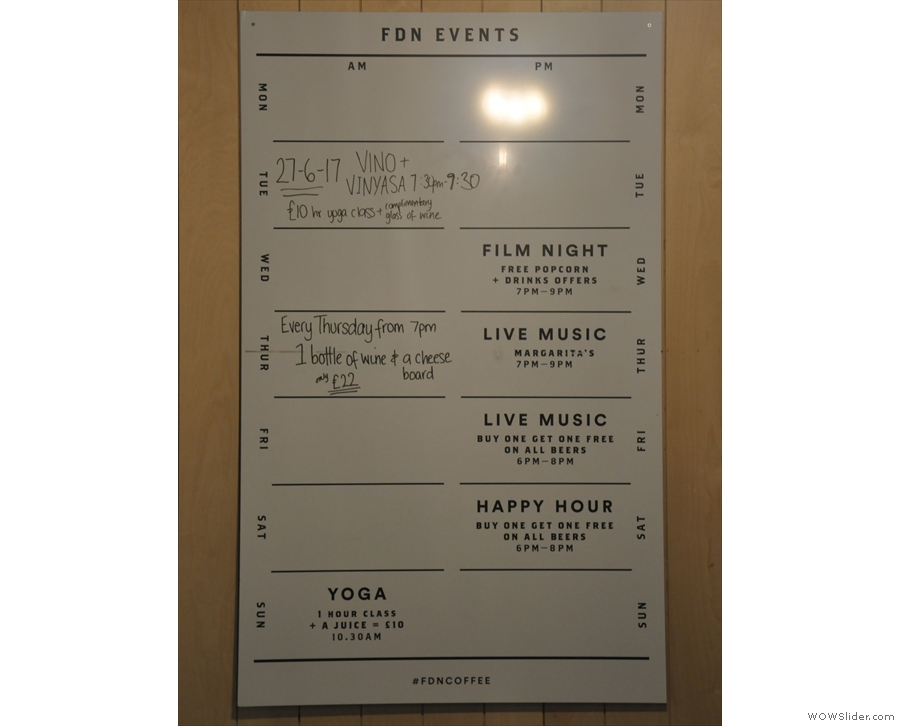 FDN EVENTS
AM PM
MON MON
TUE TUE
27-6-17 VINO +
VINYASA 7:30pm-9:30
£10 hr yoga class + complimentary
glass of wine
WED WED
FILM NIGHT
FREE POPCORN
+ DRINKS OFFERS
7PM—9PM
THUR THUR
Every Thursday from 7pm
1 bottle of wine & a cheese
board
only £22
LIVE MUSIC
MARGARITA'S
7PM—9PM
FRI FRI
LIVE MUSIC
BUY ONE GET ONE FREE
ON ALL BEERS
6PM—8PM
SAT SAT
HAPPY HOUR
BUY ONE GET ONE FREE
ON ALL BEERS
6PM—8PM
SUN SUN
YOGA
1 HOUR CLASS
+ A JUICE = £10
10.30AM
#FDNCOFFEE
WOWSlider.com